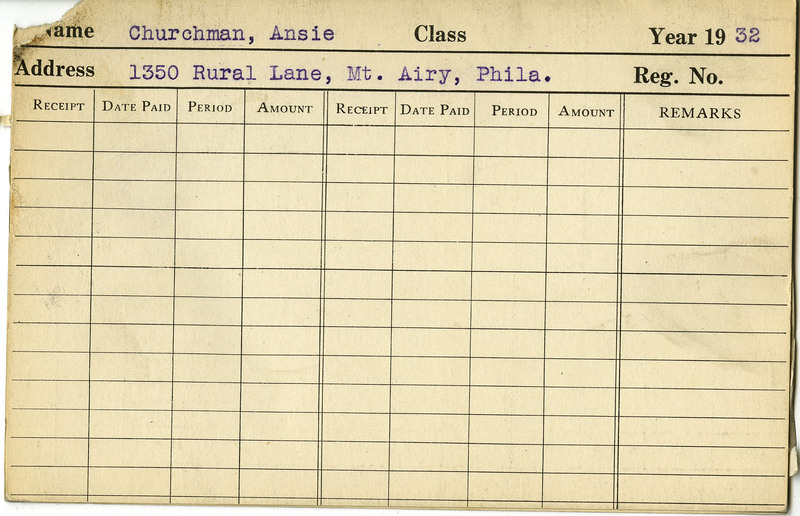 Name Churchman, Ansie Class Year 19 32
Address 1350 Rural Lane, Mt. Airy, Phila. Reg. No.
RECEIPT DATE PAID PERIOD AMOUNT RECEIPT DATE PAID PERIOD AMOUNT REMARKS